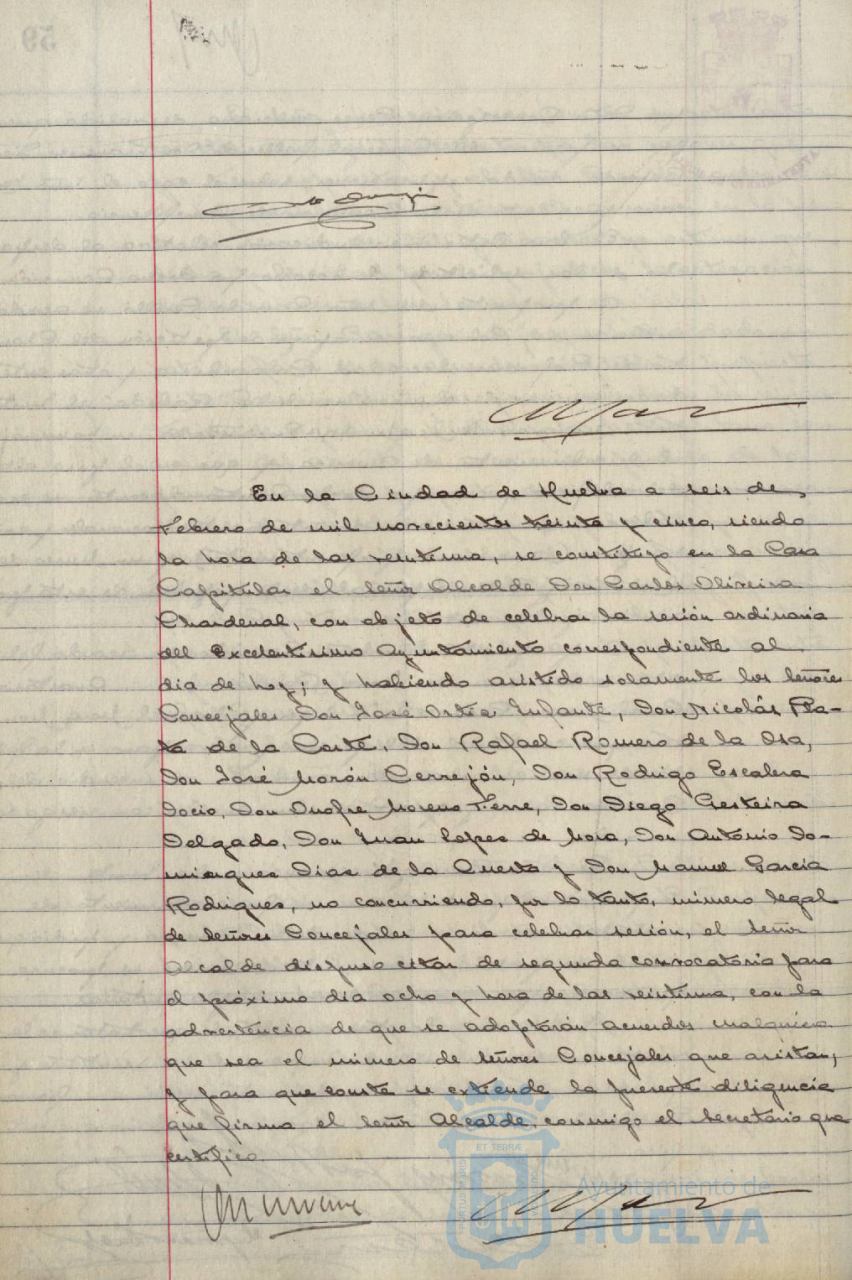 En la Ciudad de Huelva a seis de
Febrero de mil novecientos treinta y cinco, siendo
la hora de las veintiuna, se constituyó en la Casa
Capitular el señor Alcalde Don Carlos Oliveira
Chardenal, con objeto de celebrar la sesión ordinaria
del Excelentísimo Ayuntamiento correspondiente al
dia de hoy; y habiendo asistido solamente los señores
Concejales Don José Ortea Infante, Don Nicolás Pla-
ta de la Corte, Don Rafael Romero de la Osa,
Don José Morón Cerrejón, Don Rodrigo Escalera
Socio, Don Onofre Moreno Ferre, Don Diego Gesteira
Delgado, Don Juan Lopes de Mora, Don Antonio Do-
mingues Dias de la Cuesta y Don Manuel Garcia
Rodrigues, no concurriendo, por lo tanto, número legal
de señores Concejales para celebrar sesión, el señor
Alcalde dispuso citar de segunda convocatoria para
el próximo dia ocho y hora de las veintiuna, con la
advertencia de que se adoptarán acuerdos cualquiera
que sea el número de señores Concejales que asistan;
y para que conste se extiende la presente diligencia
que firma el señor Alcalde, conmigo el secretario que
certifico.
ET TERRÆ
Ayuntamiento de
HUELVA